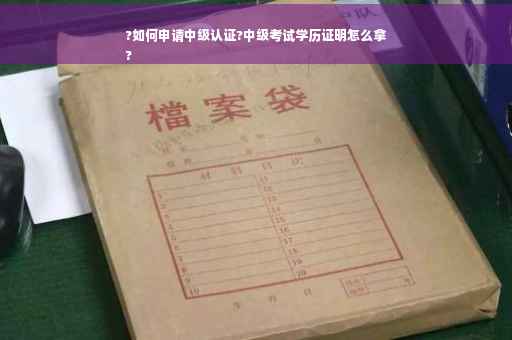 ?如何申请中级认证?中级考试学历证明怎么拿
?
檔案袋
材料目次
1
2
3
4
5
6
7
8
9
10
11
12
13
14
15
16
17
18
19
20
年月日